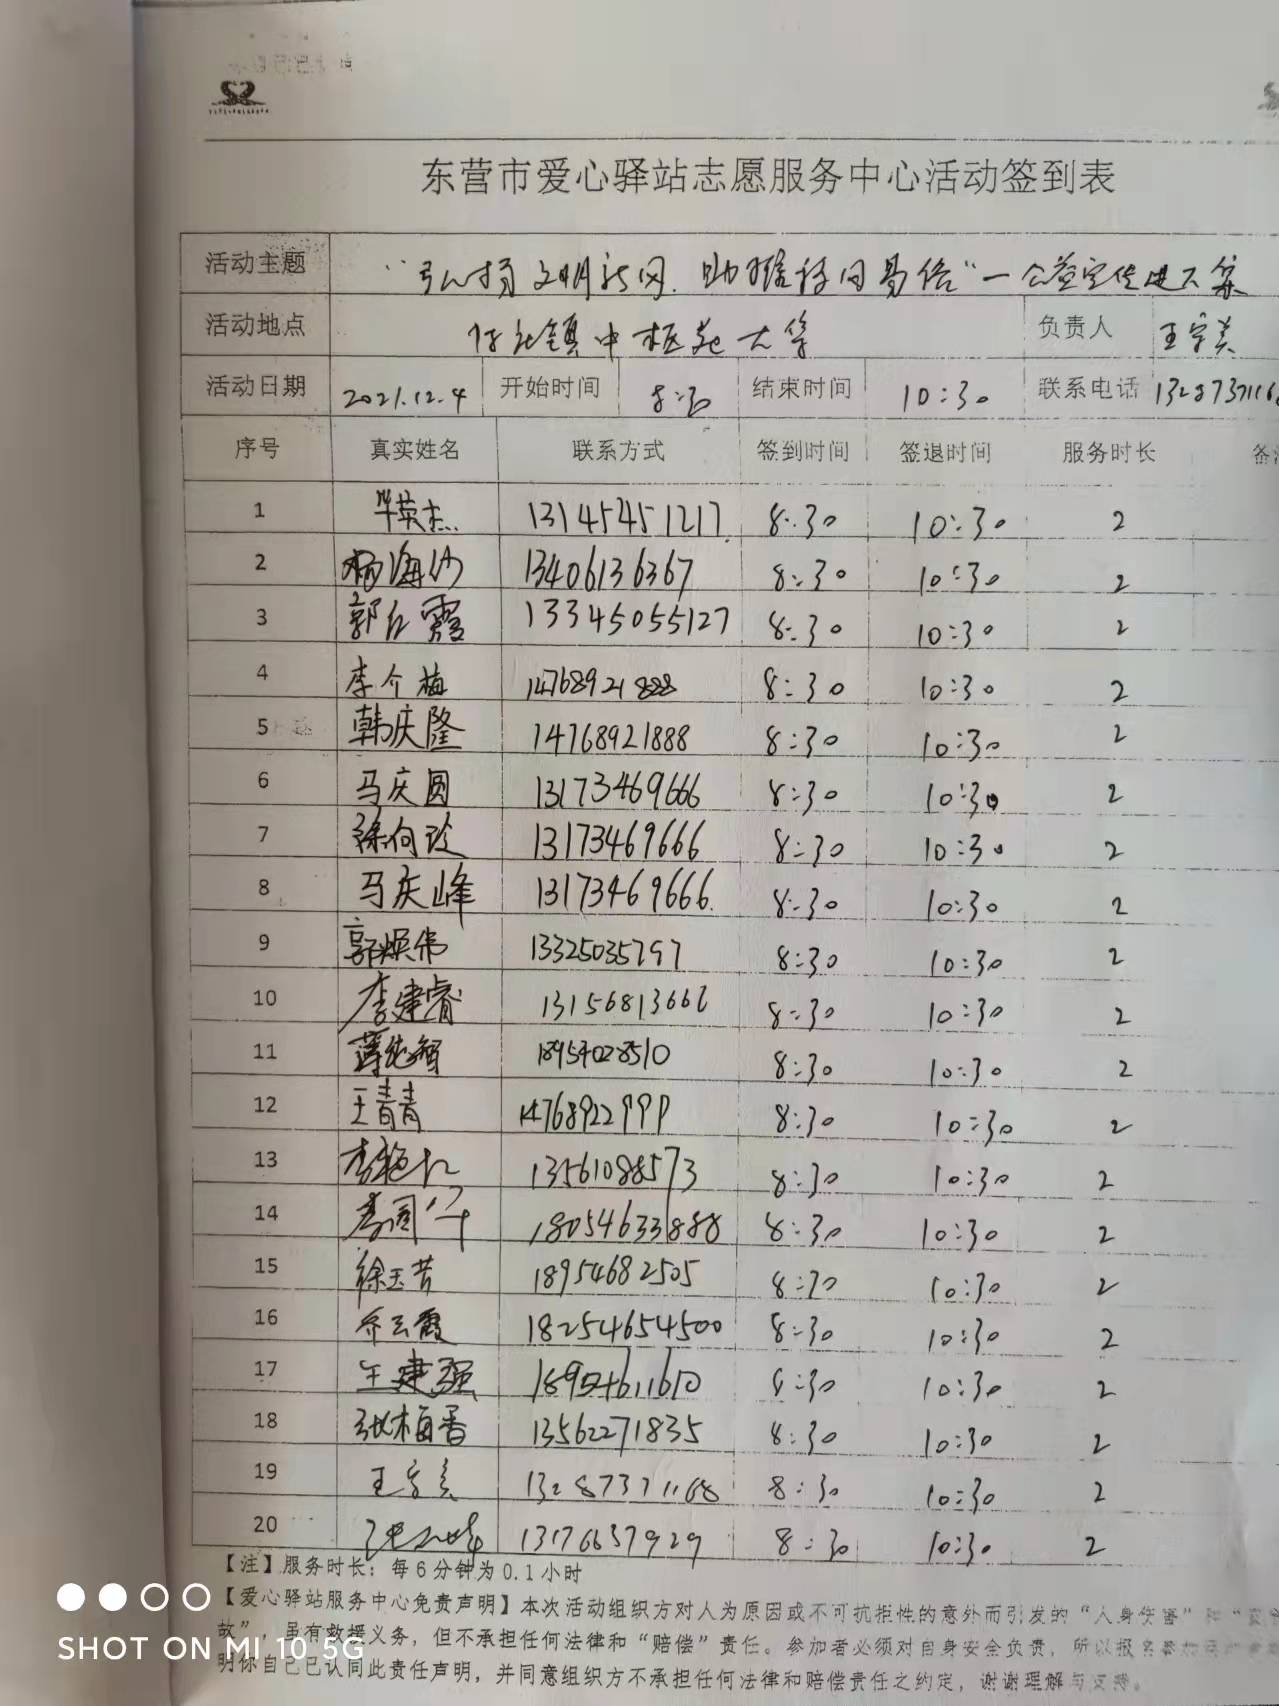 东营市爱心驿站志愿服务中心活动签到表
活动主题 “弘扬文明新风、助推移风易俗”—公益宣传进大集
活动地点 负责人
活动日期 2021.12.4 开始时间 8:30 结束时间 10:30 联系电话 1328737116
序号 真实姓名 联系方式 签到时间 签退时间 服务时长
1 毕英杰 13145451217 8:30 10:30 2
2 13406136367 8:30 10:30 2
3 郭红霞 13345055127 8:30 10:30 2
4 李介梅 14768921888 8:30 10:30 2
5 韩庆隆 14768921888 8:30 10:30 2
6 马庆圆 13173469666 8:30 10:30 2
7 13173469666 8:30 10:30 2
8 马庆峰 13173469666 8:30 10:30 2
9 郭焕伟 13325035797 8:30 10:30 2
10 李建睿 8:30 10:30 2
11 18954028510 8:30 10:30 2
12 王青青 14768922999 8:30 10:30 2
13 13561088573 8:30 10:30 2
14 18054633888 8:30 10:30 2
15 徐玉芳 18954682505 8:30 10:30 2
16 乔云霞 18254654500 8:30 10:30 2
17 王建强 18954611610 8:30 10:30 2
18 张梅香 13562271835 8:30 10:30 2
19 13287371168 8:30 10:30 2
20 13176657929 8:30 10:30 2
【注】服务时长：每6分钟为0.1小时
【爱心驿站服务中心免责声明】本次活动组织方对人为原因或不可抗拒性的意外而引发的“人身伤害”和
故”，虽有救援义务，但不承担任何法律和“赔偿”责任。参加者必须对自身安全负责，所以报名参加
明你自己已认同此责任声明，并同意组织方不承担任何法律和赔偿责任之约定，谢谢理解与支持。
SHOT ON MI 10 5G